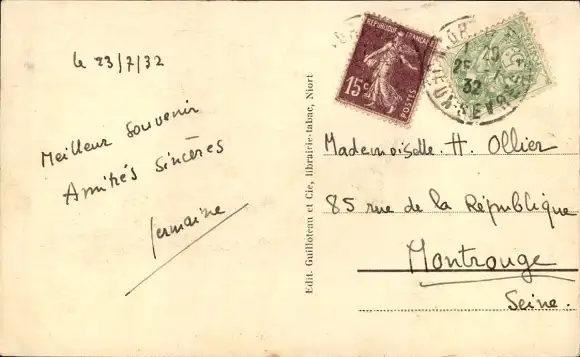 le 23/7/32
Meilleur souvenir
Amitiés sincères
Germaine
Edit. Guilloteau et Cie, librairie-tabac, Niort
RÉPUBLIQUE FRANÇAISE
15c
POSTES
DEUX-SÈVRES
32
Mademoiselle H. Ollier
85 rue de la République
Montrouge
Seine.